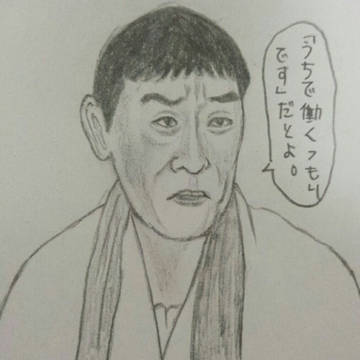 「うちで働くつもり
です」だとよ。